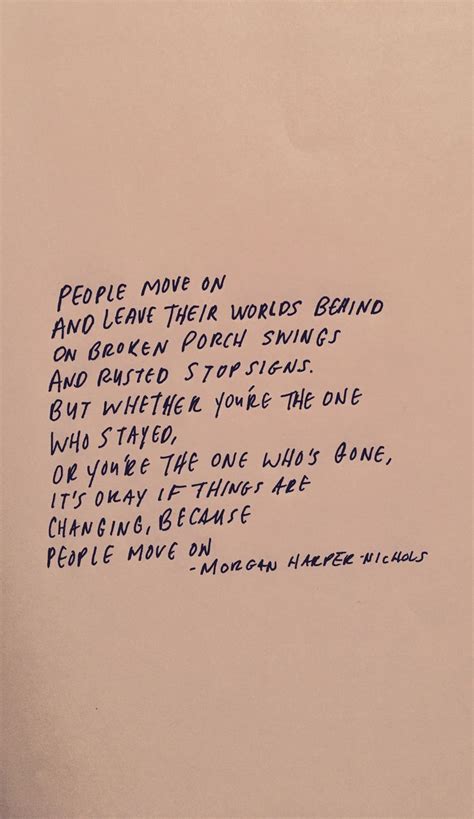 PEOPLE MOVE ON
AND LEAVE THEIR WORLDS BEHIND
ON BROKEN PORCH SWINGS
AND RUSTED STOP SIGNS.
BUT WHETHER YOU'RE THE ONE
WHO STAYED,
OR YOU'RE THE ONE WHO'S GONE,
IT'S OKAY IF THINGS ARE
CHANGING, BECAUSE
PEOPLE MOVE ON
-MORGAN HARPER NICHOLS